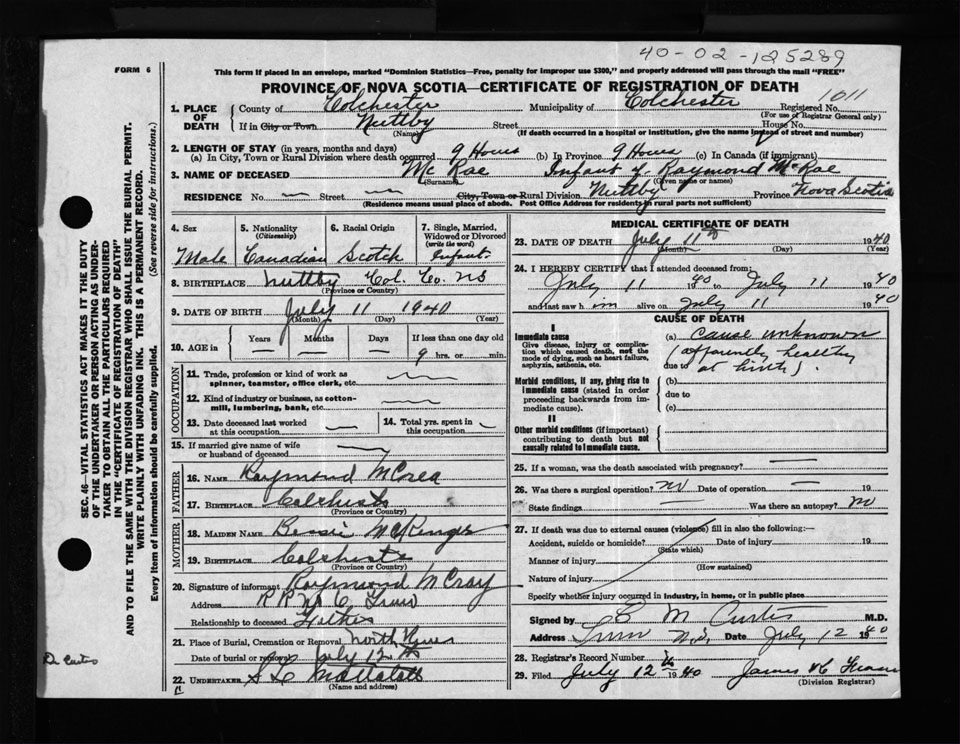 40-02-125289
FORM 6
This form if placed in an envelope, marked "Dominion Statistics—Free, penalty for improper use $300," and properly addressed will pass through the mail "FREE"
PROVINCE OF NOVA SCOTIA—CERTIFICATE OF REGISTRATION OF DEATH
1. PLACE OF DEATH County of Colchester Municipality of Colchester Registered No. 1011
(For use of Registrar General only)
If in City or Town Nuttby Street House No.
(Name) (If death occurred in a hospital or institution, give the name instead of street and number)
2. LENGTH OF STAY (in years, months and days)
(a) In City, Town or Rural Division where death occurred 9 Hours (b) In Province 9 Hours (c) In Canada (if immigrant)
3. NAME OF DECEASED Mc Rae Infant of Raymond McRae
(Surname) (Given name or names)
RESIDENCE No. — Street — City, Town or Rural Division Nuttby Province Nova Scotia
(Residence means usual place of abode. Post Office Address for residents in rural parts not sufficient)
4. Sex Male
5. Nationality (Citizenship) Canadian
6. Racial Origin Scotch
7. Single, Married, Widowed or Divorced (write the word) Infant
8. BIRTHPLACE Nuttby Col. Co. NS
(Province or Country)
9. DATE OF BIRTH July 11 1940
(Month) (Day) (Year)
10. AGE in Years Months Days If less than one day old
9 hrs. or min.
OCCUPATION
11. Trade, profession or kind of work as spinner, teamster, office clerk, etc.
12. Kind of industry or business, as cotton-mill, lumbering, bank, etc.
13. Date deceased last worked at this occupation
14. Total yrs. spent in this occupation
15. If married give name of wife or husband of deceased
FATHER
16. NAME Raymond McCrea
17. BIRTHPLACE Colchester
(Province or Country)
MOTHER
18. MAIDEN NAME Bessie
19. BIRTHPLACE Colchester
(Province or Country)
20. Signature of informant Raymond McCray
Address R R No 6 Truro
Relationship to deceased Father
21. Place of Burial, Cremation or Removal North River
Date of burial or removal July 12th
22. UNDERTAKER
(Name and address)
MEDICAL CERTIFICATE OF DEATH
23. DATE OF DEATH July 11th 1940
(Month) (Day) (Year)
24. I HEREBY CERTIFY that I attended deceased from:
July 11 1940 to July 11 1940
and last saw him alive on July 11 1940
CAUSE OF DEATH
I
Immediate cause
Give disease, injury or complication which caused death, not the mode of dying, such as heart failure, asphyxia, asthenia, etc.
(a) Cause unknown
(apparently healthy
due to at birth).
Morbid conditions, if any, giving rise to immediate cause (stated in order proceeding backwards from immediate cause).
(b)
due to
(c)
II
Other morbid conditions (if important) contributing to death but not causally related to immediate cause.
25. If a woman, was the death associated with pregnancy? —
26. Was there a surgical operation? No Date of operation —
State findings Was there an autopsy? No
27. If death was due to external causes (violence) fill in also the following:—
Accident, suicide or homicide? Date of injury 19
(State which)
Manner of injury
(How sustained)
Nature of injury
Specify whether injury occurred in industry, in home, or in public place
Signed by C M Curtis M.D.
Address Truro N.S. Date July 12 1940
28. Registrar's Record Number
29. Filed July 12th 1940 James
(Division Registrar)
SEC. 46—VITAL STATISTICS ACT MAKES IT THE DUTY
OF THE UNDERTAKER OR PERSON ACTING AS UNDER-
TAKER TO OBTAIN ALL THE PARTICULARS REQUIRED
IN THE "CERTIFICATE OF REGISTRATION OF DEATH"
AND TO FILE THE SAME WITH THE DIVISION REGISTRAR WHO SHALL ISSUE THE BURIAL PERMIT.
WRITE PLAINLY WITH UNFADING INK. THIS IS A PERMANENT RECORD.
Every item of information should be carefully supplied. (See reverse side for instructions.)
Dr Curtis